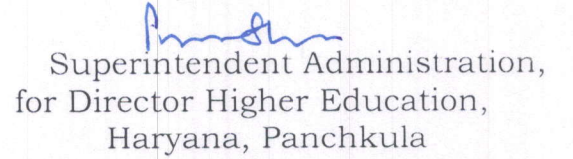 Superintendent Administration,
for Director Higher Education,
Haryana, Panchkula